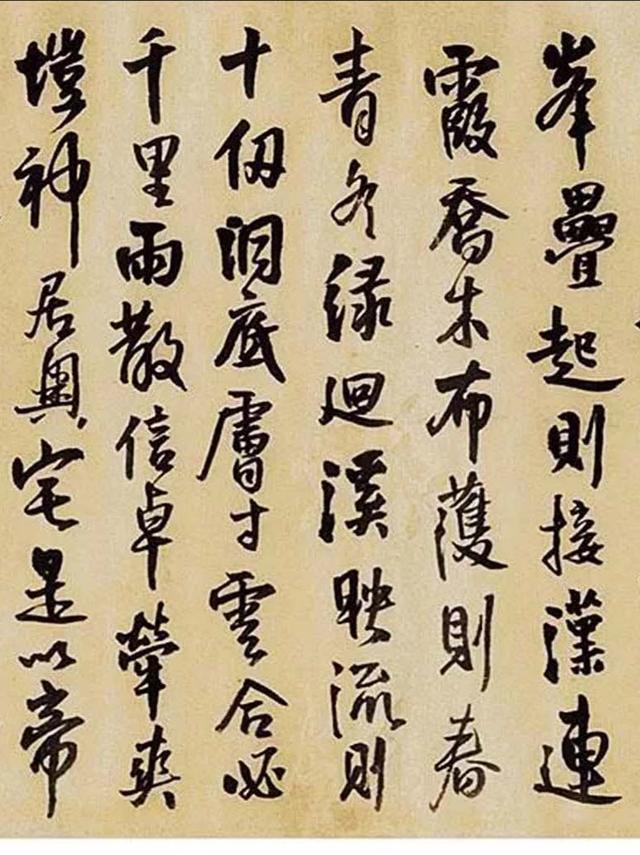 峯疊起則接漢連
霞喬木布濩則春
青冬綠迴溪映流則
十仞洞底膚寸雲合必
千里雨散信卓犖爽
塏神居奥宅是以帝